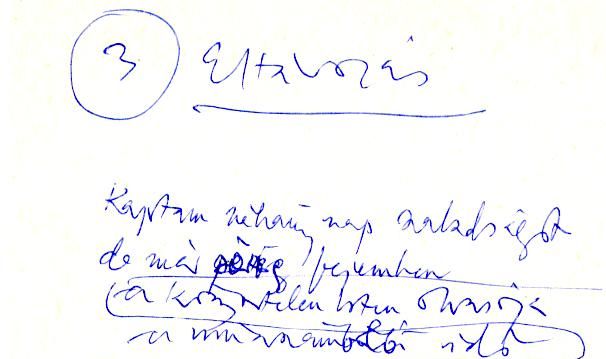 3 Eltávozás
Kaptam néhány nap szabadságot
de már fejemben
(a könyvtelen Isten olvassa
a idő